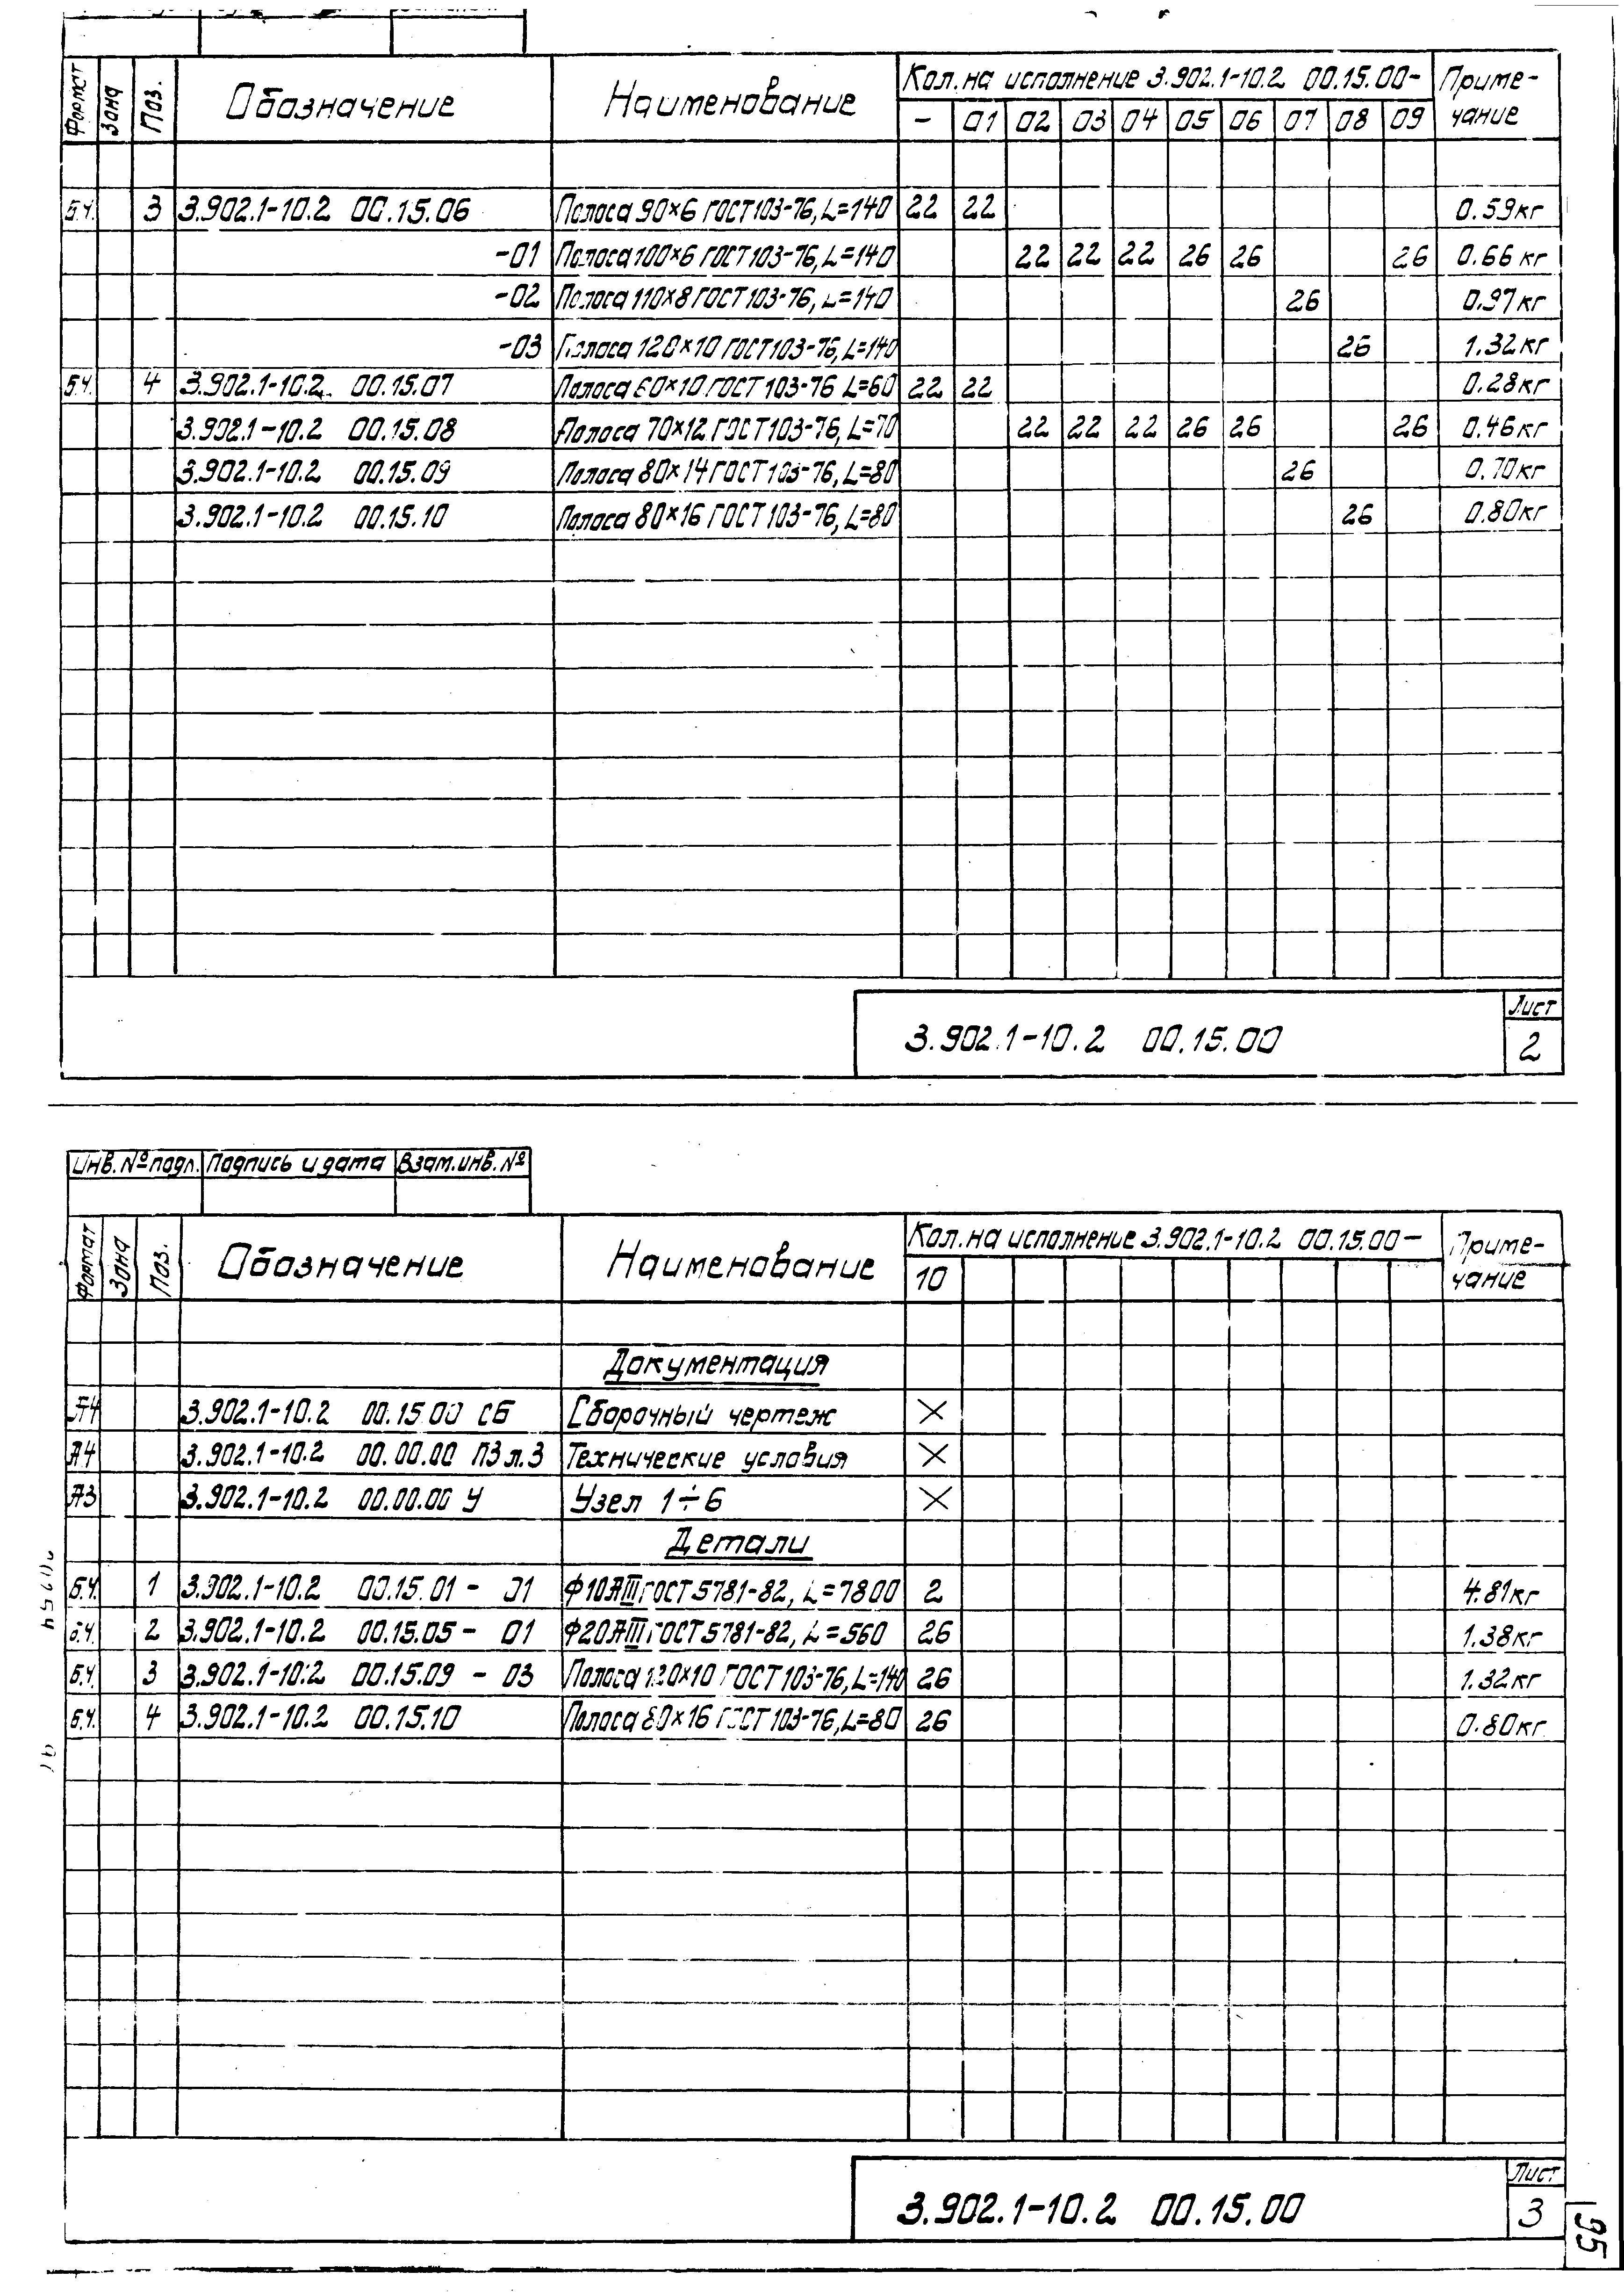 Формат Зона Поз. Обозначение Наименование Кол. на исполнение 3.902.1-10.2 00.15.00- Приме-
чание
- 01 02 03 04 05 06 07 08 09
Б.Ч. 3 3.902.1-10.2 00.15.06 Полоса 90×6 ГОСТ 103-76, L=140 22 22 0.59кг
-01 Полоса 100×6 ГОСТ 103-76, L=140 22 22 22 26 26 26 0.66 кг
-02 Полоса 110×8 ГОСТ 103-76, L=140 26 0.97кг
-03 Полоса 120×10 ГОСТ 103-76, L=140 26 1.32кг
Б.Ч. 4 3.902.1-10.2. 00.15.07 Полоса 60×10 ГОСТ 103-76 L=60 22 22 0.28кг
3.902.1-10.2 00.15.08 Полоса 70×12 ГОСТ 103-76, L=70 22 22 22 26 26 26 0.46кг
3.902.1-10.2 00.15.09 Полоса 80×14 ГОСТ 103-76, L=80 26 0.70кг
3.902.1-10.2 00.15.10 Полоса 80×16 ГОСТ 103-76, L=80 26 0.80кг
3.902.1-10.2 00.15.00 Лист
2
Инв. № подл. Подпись и дата Взам. инв. №
Формат Зона Поз. Обозначение Наименование Кол. на исполнение 3.902.1-10.2 00.15.00- Приме-
чание
10
Документация
А4 3.902.1-10.2 00.15.00 СБ Сборочный чертеж ×
А4 3.902.1-10.2 00.00.00 ПЗ л.3 Технические условия ×
А3 3.902.1-10.2 00.00.00 У Узел 1÷6 ×
Детали
Б.Ч. 1 3.902.1-10.2 00.15.01 - 01 Ф10АIII ГОСТ 5781-82, L=7800 2 4.81кг
Б.Ч. 2 3.902.1-10.2 00.15.05 - 01 Ф20АIII ГОСТ 5781-82, L=560 26 1.38кг
Б.Ч. 3 3.902.1-10.2 00.15.09 - 03 Полоса 120×10 ГОСТ 103-76, L=140 26 1.32кг
Б.Ч. 4 3.902.1-10.2 00.15.10 Полоса 80×16 ГОСТ 103-76, L=80 26 0.80кг.
3.902.1-10.2 00.15.00 Лист
3
95